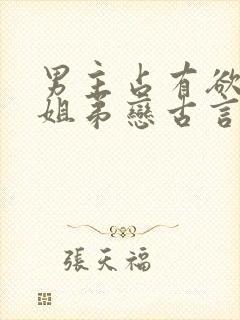 男主占有欲
姐弟戀古言
張天福